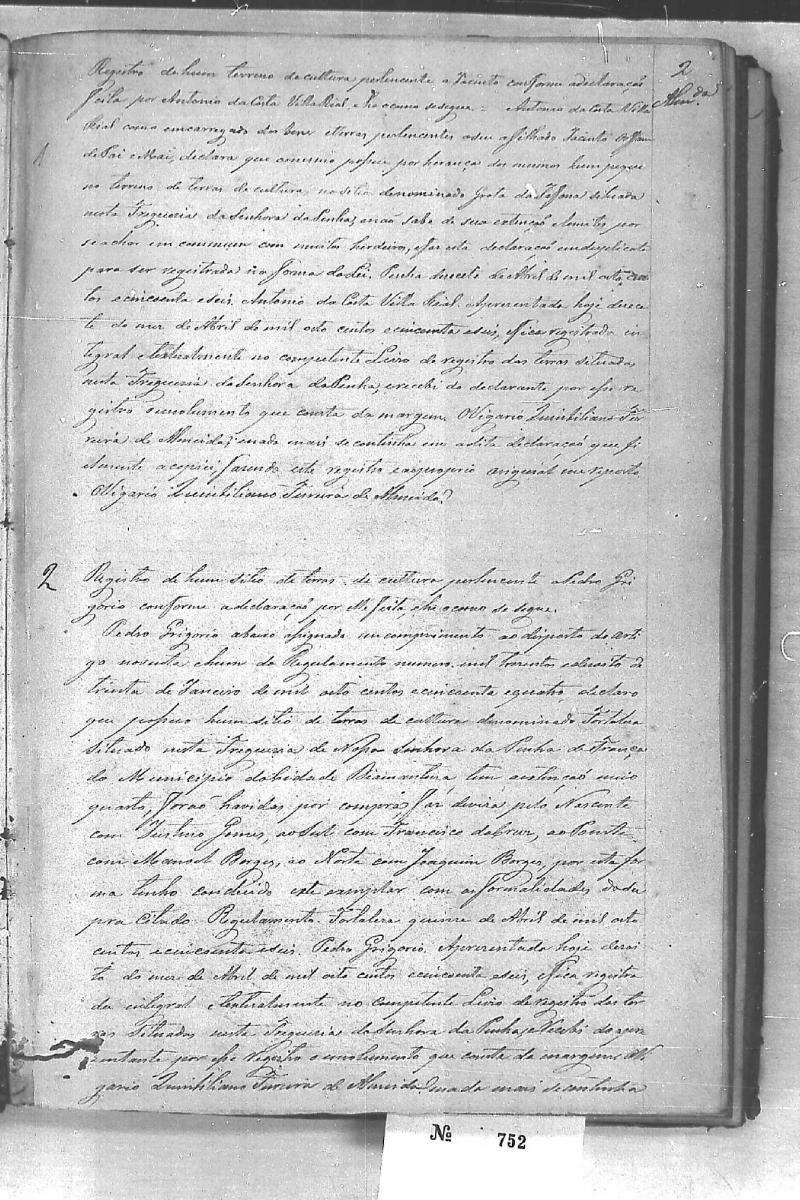 2
Alm.da
1
Registro de hum terreno de cultura pertencente a Jacinto conforme a declaração
feita por Antonio da Costa Villa Rial e he o como se segue = Antonio da Costa Villa
Rial como emcarregado dos bens e terras pertencentes a seu afilhado Jacinto Orfam
de Pai e Mai, declara que o mesmo possue por herança dos mesmos hum peque
no terreno de terras de cultura, no sitio denominado Grota da situada
nesta Freguezia da Senhora da Penha, e não sabe de sua extenção e limites por
se achar em commum com muitos herdeiros, e faz esta declaração em duplicata
para ser registrada na forma da Lei. Penha dezcete de Abril de mil oito cen
tos e cincoenta e seis. Antonio da Costa Villa Rial. Apresentada hoje dezece
te do mez de Abril de mil oito centos e cincoenta e seis, e fica registrada in
tegral e textualmente no competente Livro de registro das terras situadas
nesta Freguezia da Senhora da Penha, e recebi do declarante por esse re
gistro o emolumento que consta da margem. O Vigario Quintiliano Fer
reira de Almeida; e nada mais se continha em a dita declaração que fi
elmente a copiei, fazendo este registro e ao proprio original me reporto
O Vigario Quintiliano Ferreira de Almeida.
2
Registro de hum sitio de terras de cultura pertencente a Pedro Gri
gorio conforme a declaração por elle feita, e he o como se segue.
Pedro Grigorio abaixo assignado em comprimento ao disposto do arti
go noventa e hum do Regulamento numero mil trezentos e dezoito de
trinta de Janeiro de mil oito centos e cincoenta e quatro, declaro
que possuo hum sitio de terras de cultura denominado Fortaleza
situado nesta Freguezia de Nossa Senhora da Penha de França
do Municipio da Cidade Diamantina tem extenção meio
quarto, forão havidas por compra, faz diviza, pelo Nascente
com Justino Gomes, ao Sul com Francisco da Cruz, ao Poente
com Manoel Borges, ao Norte com Joaquim Borges, por esta for
ma tenho concluido este exemplar com as formalidades do su
pra citado Regulamento. Fortaleza quinze de Abril de mil oito
centos e cincoenta e seis. Pedro Grigorio. Apresentada hoje dezoi
to do mez de Abril de mil oito centos e cincoenta e seis, e fica registra
da integral e textualmente no competente Livro de registro das ter
ras situadas nesta Freguezia da Senhora da Penha, e recebi do apre
zentante por esse registro o emolumento que consta da margem. O Vi
gario Quintiliano Ferreira de Almeida. E nada mais se continha
Nº 752